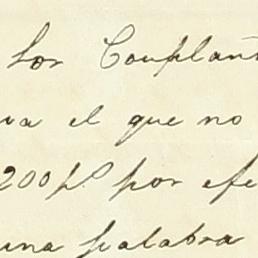 los Conplan
va el que no
200 p.s por efe
una palabra